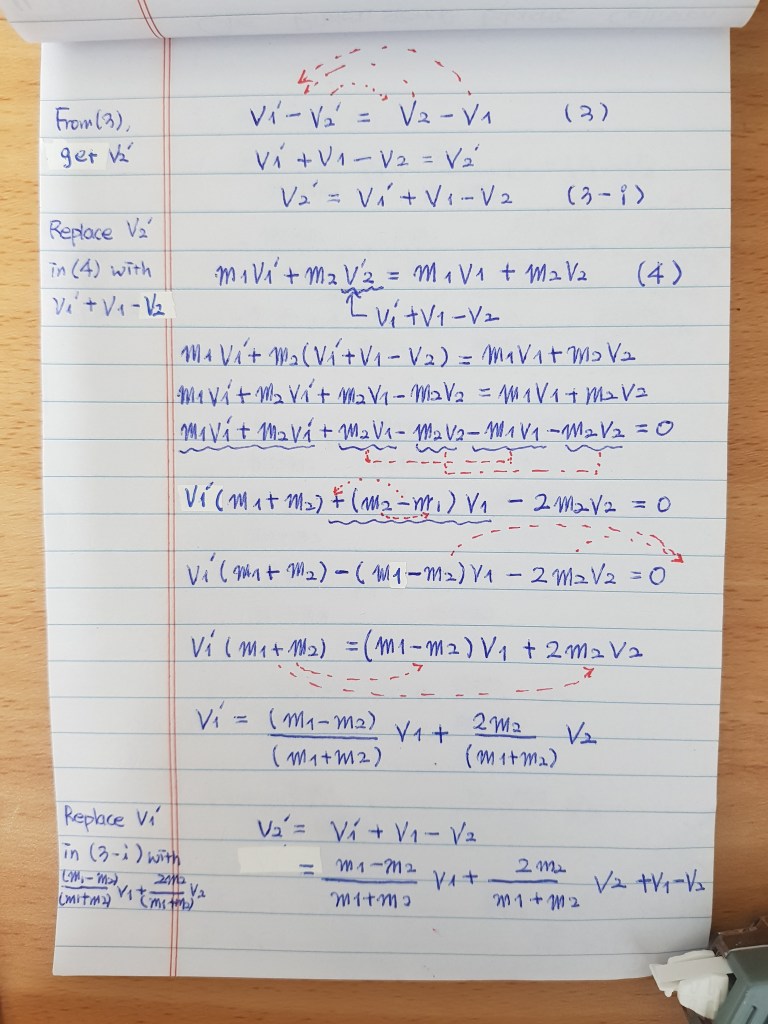 From(3), V1′ − V2′ = V2 − V1 (3)
get V2′ V1′ + V1 − V2 = V2′
V2′ = V1′ + V1 − V2 (3-i)
Replace V2′
in (4) with m1V1′ + m2V′2 = m1V1 + m2V2 (4)
V1′ + V1 − V2 V1′ + V1 − V2
m1V1′ + m2(V1′ + V1 − V2) = m1V1 + m2V2
m1V1′ + m2V1′ + m2V1 − m2V2 = m1V1 + m2V2
m1V1′ + m2V1′ + m2V1 − m2V2 − m1V1 − m2V2 = 0
V1′(m1 + m2) + (m2 − m1)V1 − 2m2V2 = 0
V1′(m1 + m2) − (m1 − m2)V1 − 2m2V2 = 0
V1′(m1 + m2) = (m1 − m2)V1 + 2m2V2
V1′ = (m1 − m2)/(m1 + m2) V1 + 2m2/(m1 + m2) V2
Replace V1′ V2′ = V1′ + V1 − V2
in (3-i) with = m1 − m2/m1 + m2 V1 + 2m2/m1 + m2 V2 + V1 − V2
(m1 − m2)/(m1 + m2) V1 + 2m2/(m1 + m2) V2